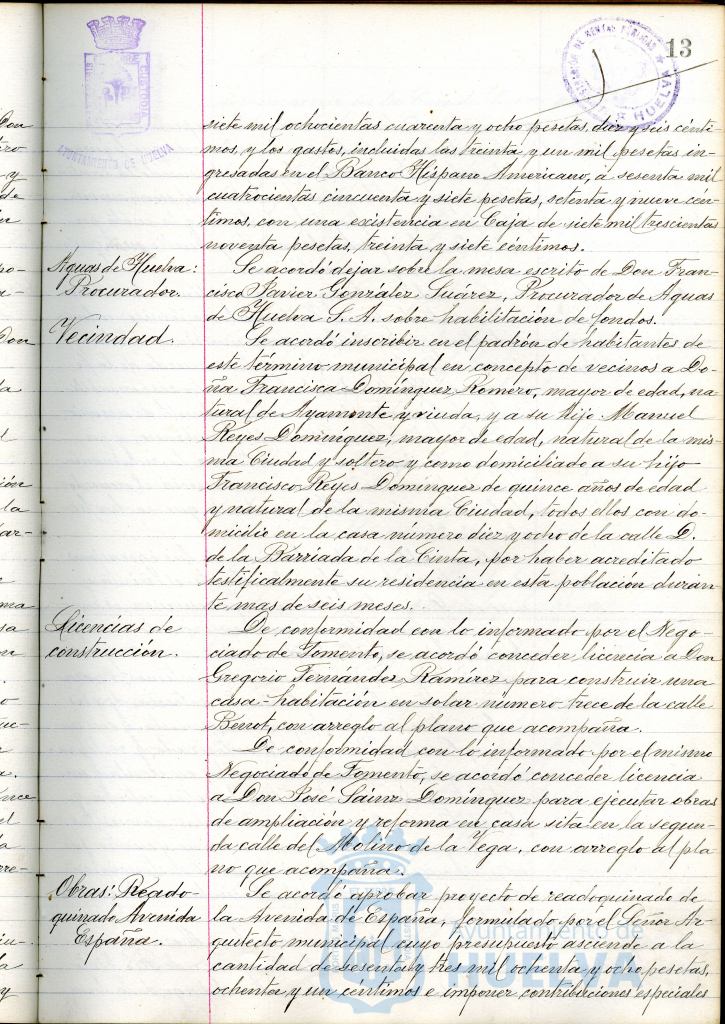 13
AYUNTAMIENTO DE HUELVA
siete mil ochocientas cuarenta y ocho pesetas, diez y seis cénti-
mos, y los gastos, incluidas las treinta y un mil pesetas in-
gresadas en el Banco Hispano Americano, a sesenta mil
cuatrocientas cincuenta y siete pesetas, setenta y nueve cén-
timos, con una existencia en Caja de siete mil trescientas
noventa pesetas, treinta y siete céntimos.
Aguas de Huelva:
Procurador.
Se acordó dejar sobre la mesa escrito de Don Fran-
cisco Javier González Suárez, Procurador de Aguas
de Huelva S.A. sobre habilitación de fondos.
Vecindad.
Se acordó inscribir en el padrón de habitantes de
este término municipal en concepto de vecinos a Do-
ña Francisca Domínguez Romero, mayor de edad, na-
tural de Ayamonte y viuda, y a su hijo Manuel
Reyes Domínguez, mayor de edad, natural de la mis-
ma Ciudad y soltero y como domiciliado a su hijo
Francisco Reyes Domínguez de quince años de edad
y natural de la misma Ciudad, todos ellos con do-
micilio en la casa número diez y ocho de la calle D.
de la Barriada de la Cinta, por haber acreditado
testificalmente su residencia en esta población duran-
te mas de seis meses.
Licencias de
construcción.
De conformidad con lo informado por el Nego-
ciado de Fomento, se acordó conceder licencia a Don
Gregorio Fernándes Ramírez para construir una
casa-habitación en solar número trece de la calle
Benot, con arreglo al plano que acompaña.
De conformidad con lo informado por el mismo
Negociado de Fomento, se acordó conceder licencia
a Don José Sáinz Domínguez para ejecutar obras
de ampliación y reforma en casa sita en la segun-
da calle del Molino de la Vega, con arreglo al pla
no que acompaña.
Obras: Reado-
quinado Avenida
España.
Se acordó aprobar proyecto de readoquinado de
la Avenida de España, formulado por el Señor Ar-
quitecto municipal cuyo presupuesto asciende a la
cantidad de sesenta y tres mil ochenta y ocho pesetas,
ochenta y un céntimos e imponer contribuciones especiales
Ayuntamiento de
HUELVA